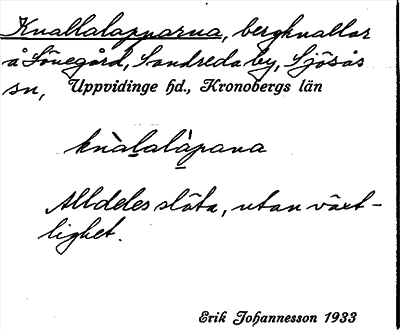 Knallalapparna, bergknallar
å Sönegård, Sandreda by, Sjösås
sn, Uppvidinge hd., Kronobergs län
knàlalàpana
Alldeles släta, utan växt-
lighet.
Erik Johannesson 1933